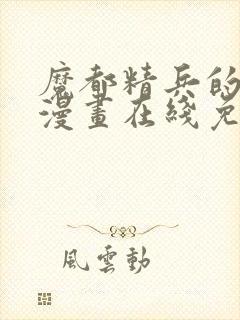 魔都精兵的
漫畫在綫免
風雲動